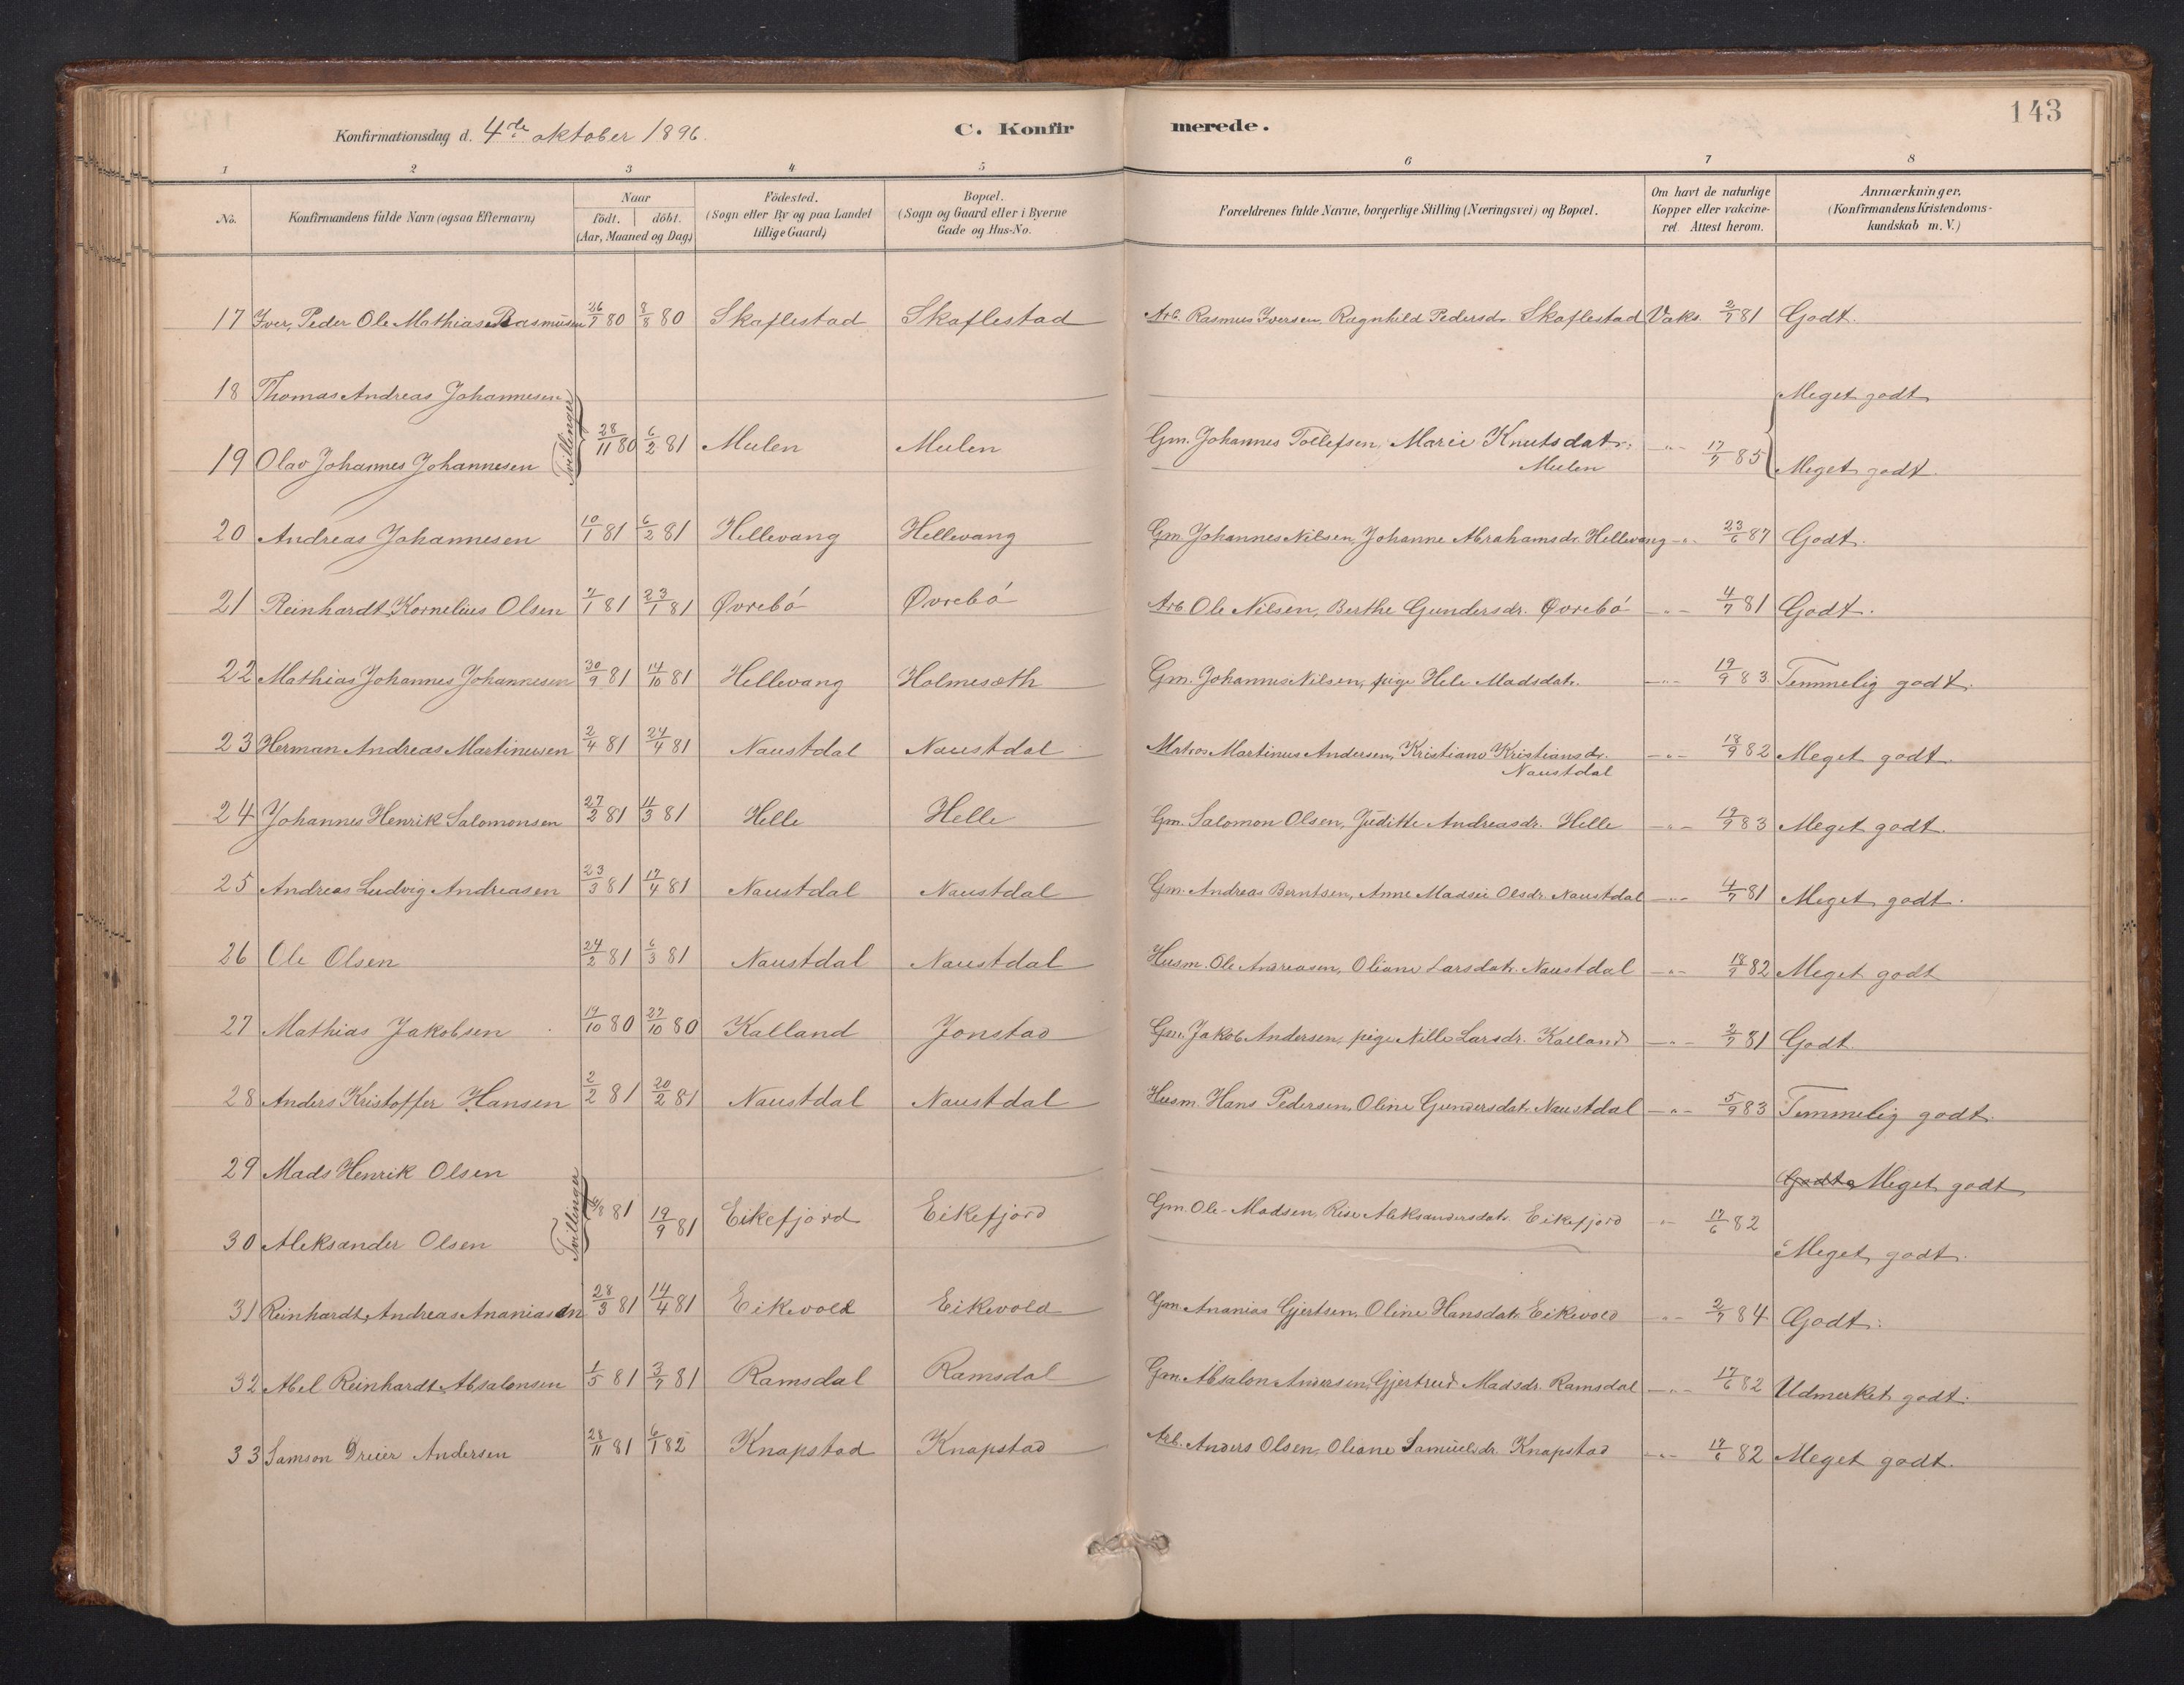 143
Konfirmationsdag d. 4de oktober 1896. C. Konfirmerede.
1 2 3 4 5 6 7 8
No. Konfirmandens fulde Navn (ogsaa Efternavn) Naar födt. döbt. (Aar, Maaned og Dag) Födested. (Sogn eller By og paa Landet tillige Gaard) Bopæl. (Sogn og Gaard eller i Byerne Gade og Hus-No. Forældrenes fulde Navne, borgerlige Stilling (Næringsvei) og Bopæl. Om havt de naturlige Kopper eller vakcineret. Attest herom. Anmærkninger. (Konfirmandens Kristendomskundskab m. V.)
17 Iver Peder Ole Mathias Rasmusen 26/7 80 8/8 80 Skaflestad Skaflestad Arb. Rasmus Iversen, Ragnhild Pedersdr. Skaflestad Vaks. 2/7 81 Godt.
18 Thomas Andreas Johannesen Meget godt
Tvillinger 28/11 80 6/2 81 Mulen Mulen Gm. Johannes Tollefsen, Marie Knutsdatr. Mulen -"- 17/7 85
19 Olav Johannes Johannesen Meget godt.
20 Andreas Johannesen 10/1 81 6/2 81 Hellevang Hellevang Gm. Johannes Nilsen, Johanne Abrahamsdr. Hellevang -"- 23/6 87 Godt.
21 Reinhardt Kornelius Olsen 7/1 81 23/1 81 Øvrebó Øvrebó Arb Ole Nilsen, Berthe Gundersdr. Øvrebó -"- 4/7 81 Godt.
22 Mathias Johannes Johannesen 30/9 81 14/10 81 Hellevang Holmesøth Gm. Johannes Nilsen, pige Hele Madsdatr. -"- 19/9 83 Temmelig godt.
23 Herman Andreas Martinusen 2/4 81 24/4 81 Naustdal Naustdal Matros Martinus Andersen, Kristiane Kristiansdr. Naustdal -"- 18/9 82 Meget godt.
24 Johannes Henrik Salomonsen 27/2 81 11/3 81 Helle Helle Gm. Salomon Olsen, Judithe Andreasdr. Helle -"- 19/9 83 Meget godt.
25 Andreas Ludvig Andreasen 23/3 81 17/4 81 Naustdal Naustdal Gm. Andreas Berntsen, Anne Madsie Olsdr. Naustdal -"- 4/7 81 Meget godt.
26 Ole Olsen 24/2 81 6/3 81 Naustdal Naustdal Husm. Ole Andreasen, Oliane Larsdatr. Naustdal -"- 18/9 82 Meget godt
27 Mathias Jakobsen 14/10 80 27/10 80 Kalland Jonstad Gm. Jakob Andersen, pige Nille Larsdr. Kalland -"- 2/7 81 Godt
28 Anders Kristoffer Hansen 2/2 81 20/2 81 Naustdal Naustdal Husm. Hans Pedersen, Oline Gundersdatr. Naustdal -"- 5/9 83 Temmelig godt.
29 Mads Henrik Olsen Godt. Meget godt
Tvillinger 81 19/9 81 Eikefjord Eikefjord Gm. Ole Madsen, Rise Aleksandersdatr. Eikefjord -"- 17/6 82
30 Aleksander Olsen Meget godt.
31 Reinhardt Andreas Ananiasen 28/3 81 14/4 81 Eikevold Eikevold Gm Ananias Gjertsen, Oline Hansdatr. Eikevold -"- 2/7 84 Godt.
32 Abel Reinhardt Absalonsen 1/5 81 3/7 81 Ramsdal Ramsdal Gm. Absalon Andersen, Gjertrud Madsdr. Ramsdal -"- 17/6 82 Udmerket godt.
33 Samson Dreier Andersen 28/11 81 6/1 82 Knapstad Knapstad Arb. Anders Olsen, Oliane Samuelsdr. Knapstad -"- 17/6 82 Meget godt.